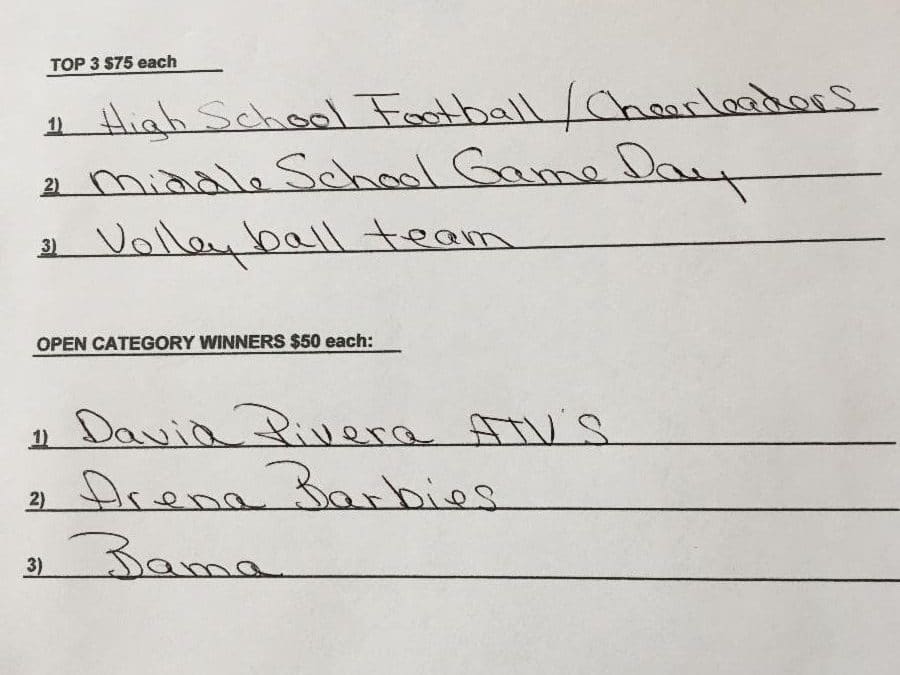 TOP 3 $75 each
1) High School Football / Cheerleaders
2) Middle School Game Day
3) Volleyball team
OPEN CATEGORY WINNERS $50 each:
1) David Rivera ATV'S
2) Arena Barbies
3) Bama